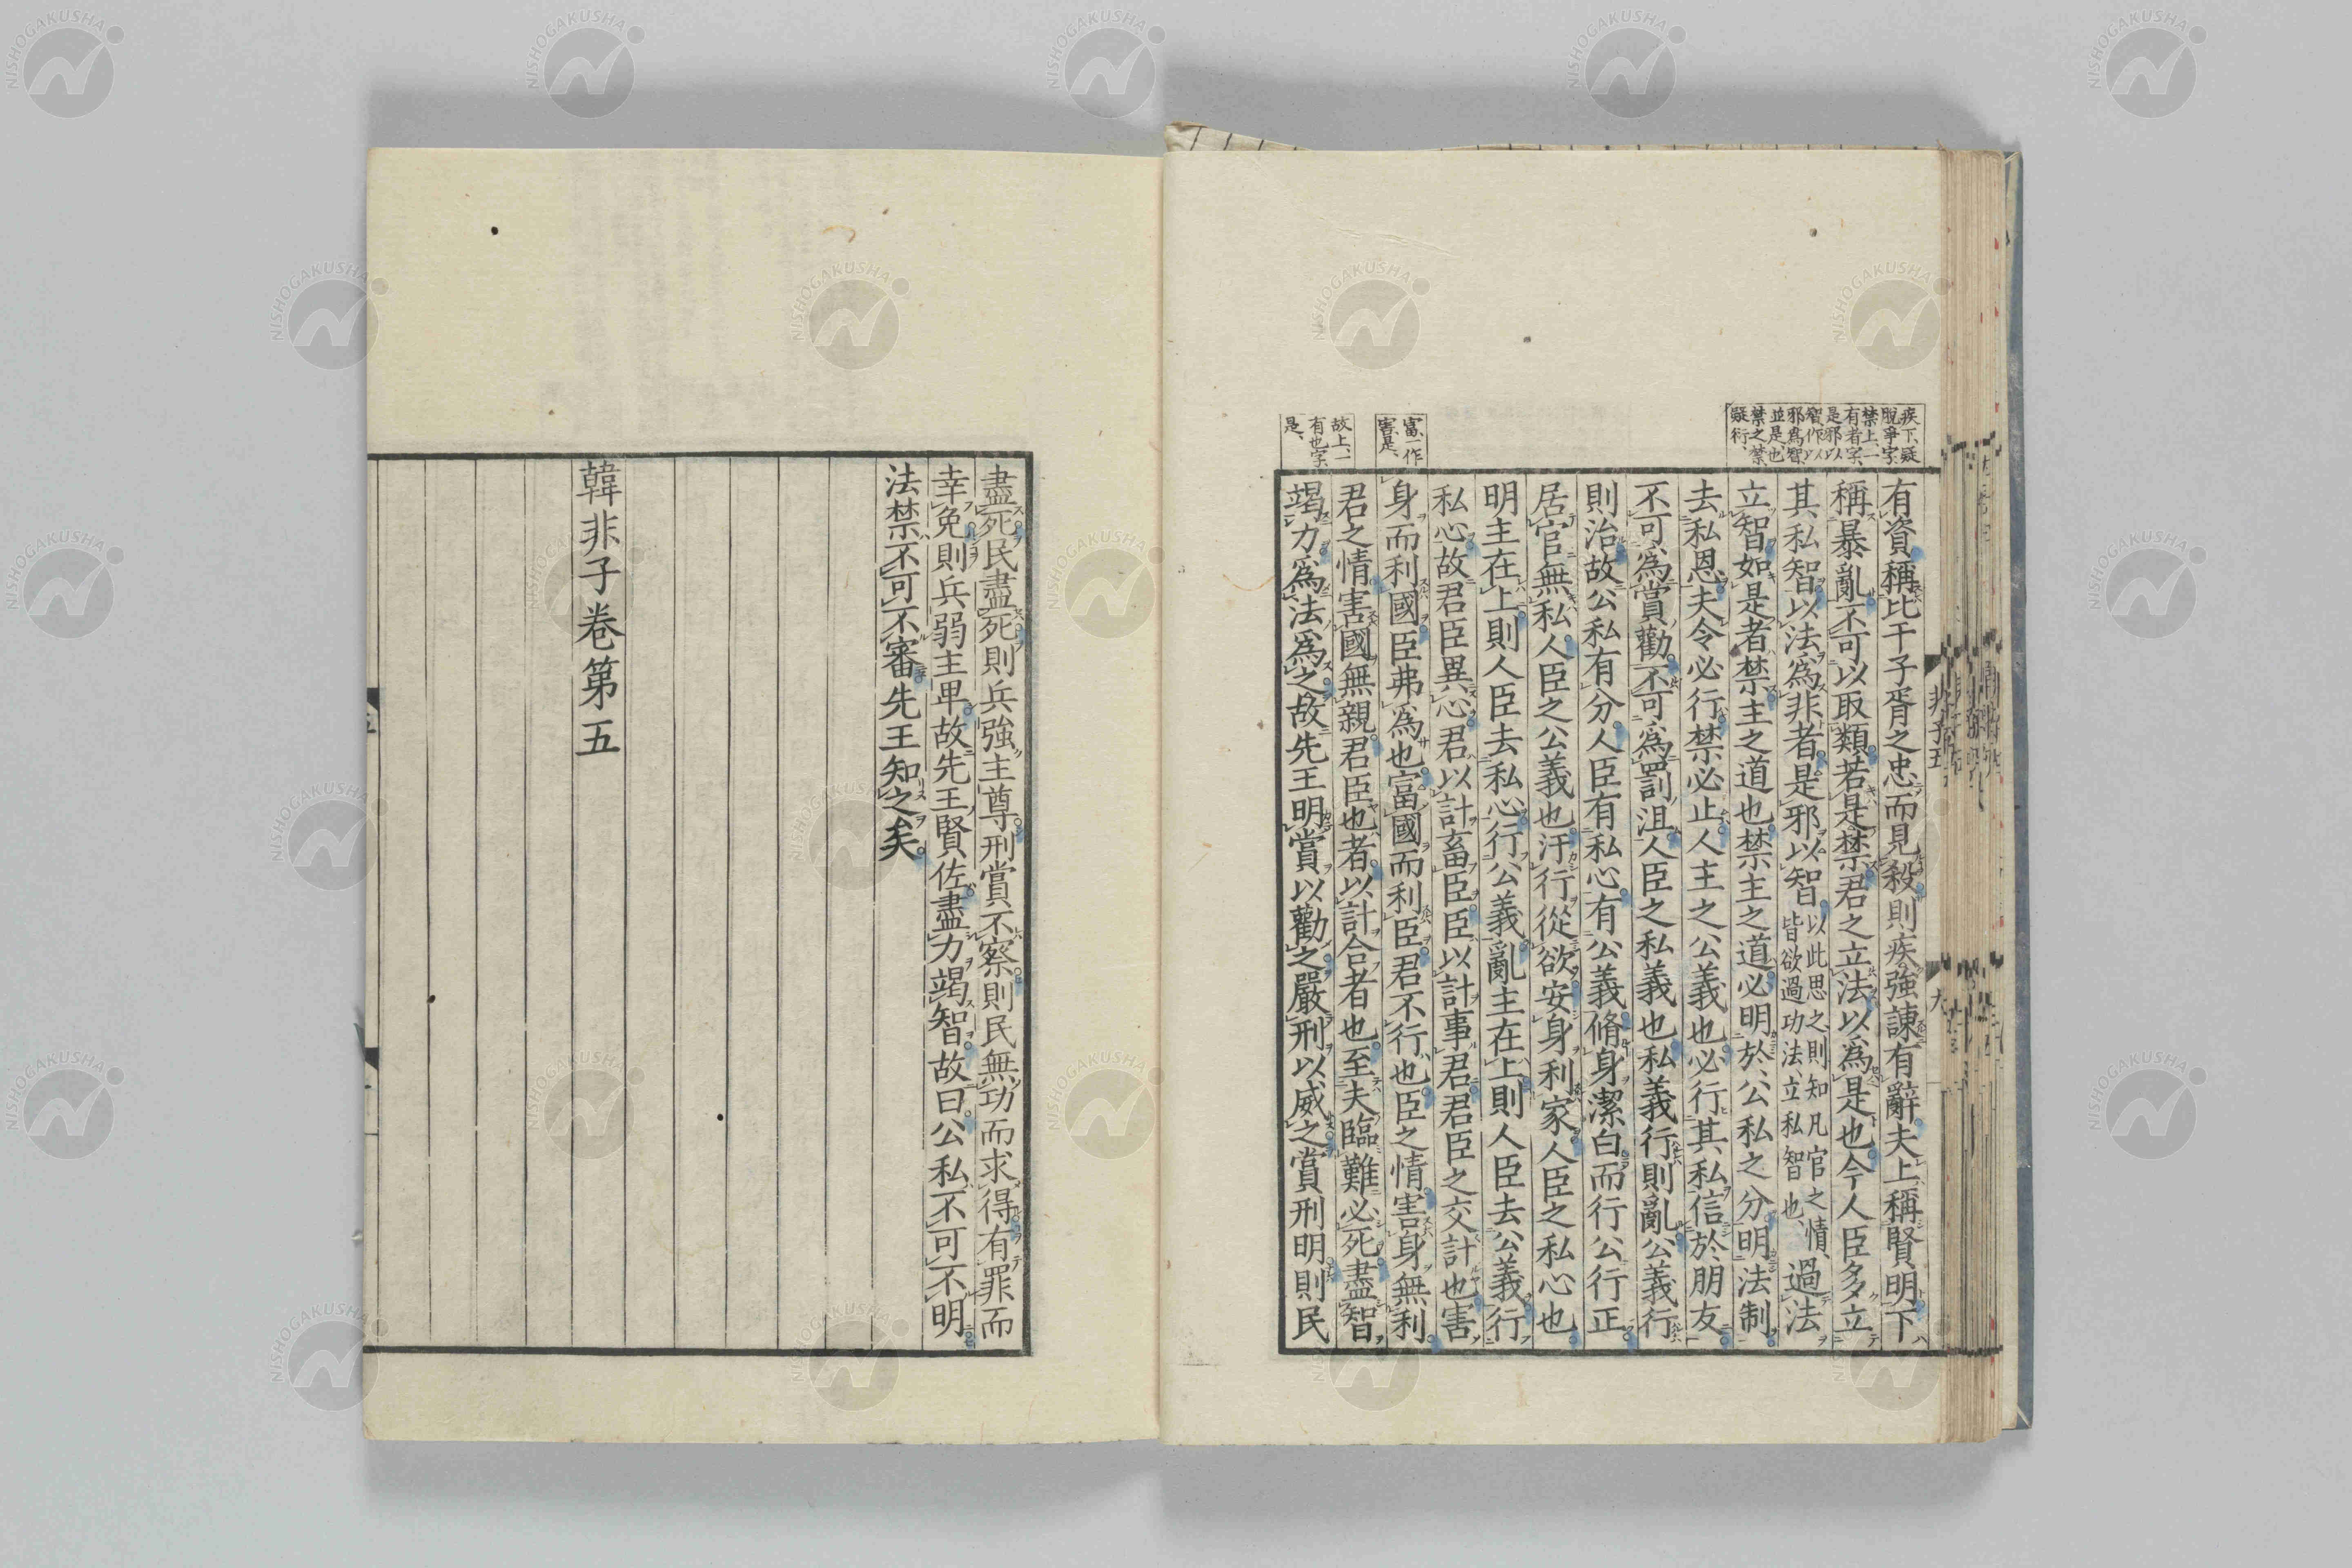 疾下、疑
脫爭字、
禁上、一
有者字、
是邪以
智作以
邪爲智、
並是、也
禁之禁、
疑衍、
富一作
害、是、
故上、一
有也字、
是、
有資稱比干子胥之忠而見殺則疾強諫有辭夫上稱賢明下
稱暴亂不可以取類若是禁君之立法以爲是也今人臣多立
其私智以法爲非者是邪以智以此思之則知凡官之情、皆欲過功法、立私智也、過法
立智如是者禁主之道也禁主之道必明於公私之分明法制
去私恩夫令必行禁必止人主之公義也必行其私信於朋友
不可爲賞勸不可爲罰沮人臣之私義也私義行則亂公義行
則治故公私有分人臣有私心有公義脩身潔白而行公行正
居官無私人臣之公義也汙行從欲安身利家人臣之私心也
明主在上則人臣去私心行公義亂主在上則人臣去公義行
私心故君臣異心君以計畜臣臣以計事君君臣之交計也害
身而利國臣弗爲也富國而利臣君不行也臣之情害身無利
君之情害國無親君臣也者以計合者也至夫臨難必死盡智
竭力爲法爲之故先王明賞以勸之嚴刑以威之賞刑明則民
非子五
盡死民盡死則兵強主尊刑賞不察則民無功而求得有罪而
幸免則兵弱主卑故先王賢佐盡力竭智故曰公私不可不明
法禁不可不審先王知之矣
韓非子卷第五
NISHOGAKUSHA